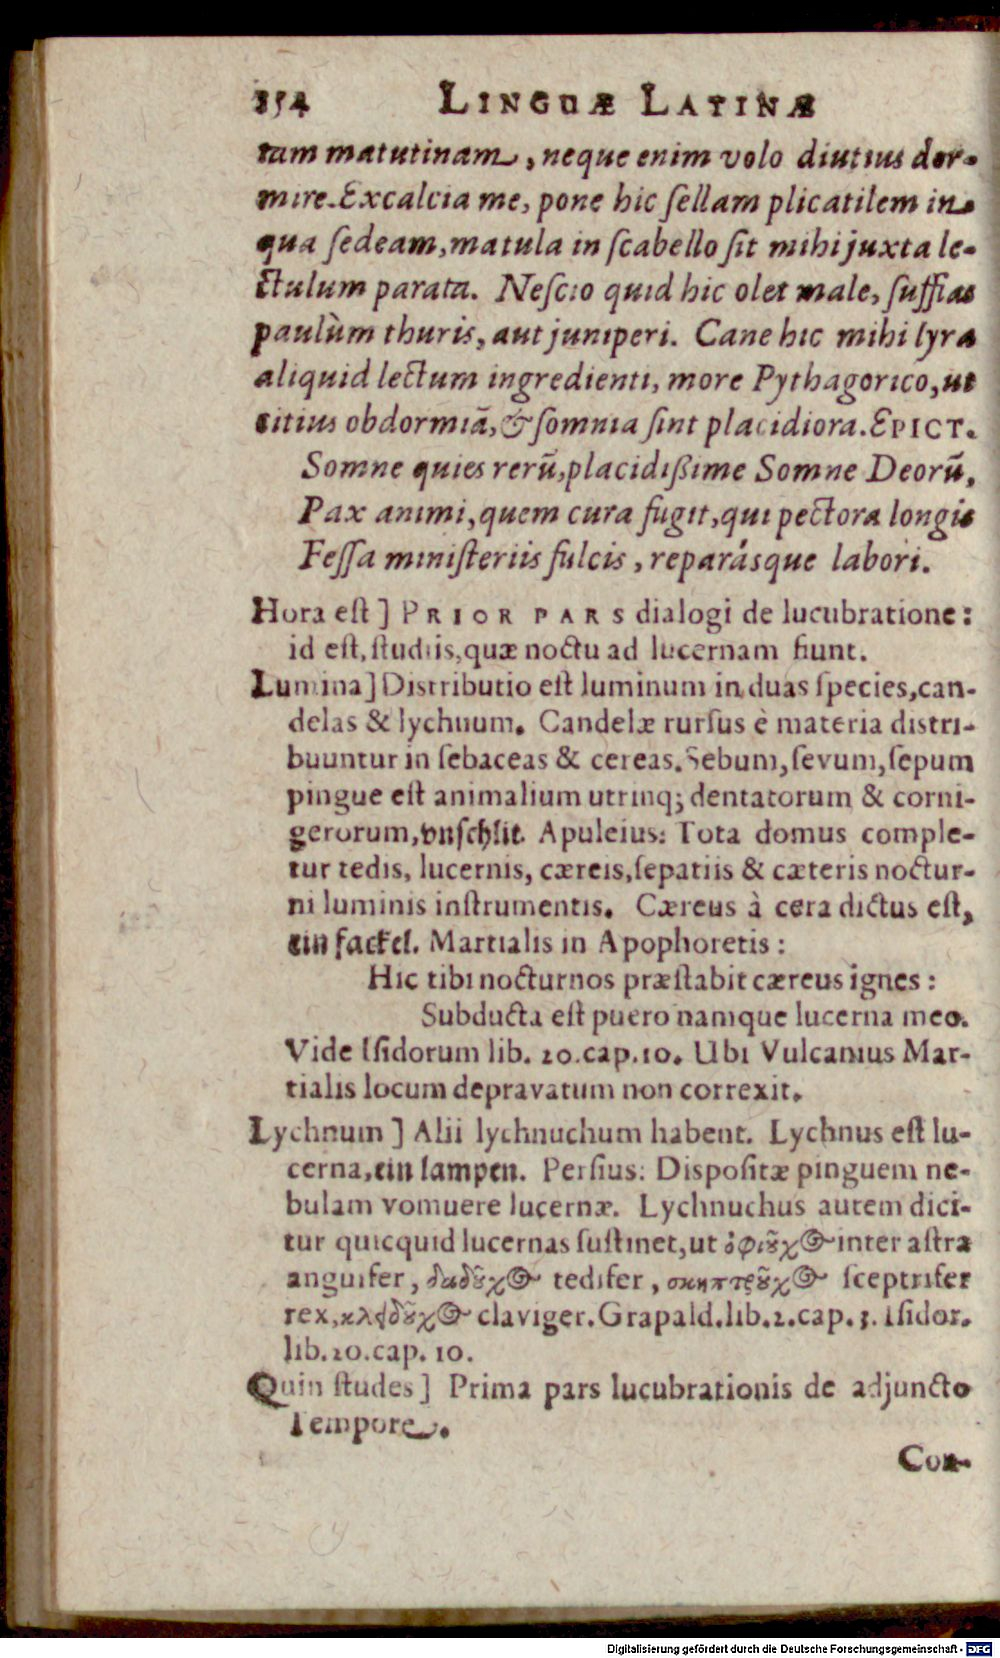 154 LINGUÆ LATINÆ
tam matutinam, neque enim volo diutius dor-
mire. Excalcia me, pone hic ſellam plicatilem in
qua ſedeam, matula in ſcabello ſit mihi juxta le-
ctulum parata. Neſcio quid hic olet male, ſuffias
paulùm thuris, aut juniperi. Cane hic mihi lyra
aliquid lectum ingredienti, more Pythagorico, ut
citius obdormiã, & ſomnia ſint placidiora. EPICT.
Somne quies rerũ, placidißime Somne Deorũ,
Pax animi, quem cura fugit, qui pectora longis
Feſſa miniſteriis fulcis, reparásque labori.
Hora eſt] PRIOR PARS dialogi de lucubratione:
id eſt, ſtudiis, quæ noctu ad lucernam fiunt.
Lumina] Distributio eſt luminum in duas ſpecies, can-
delas & lychnum. Candelæ rurſus è materia distri-
buuntur in ſebaceas & cereas. Sebum, ſevum, ſepum
pingue eſt animalium utrinq; dentatorum & corni-
gerorum, vnſchlit. Apuleius: Tota domus comple-
tur tedis, lucernis, cæreis, ſepatiis & cæteris noctur-
ni luminis inſtrumentis. Cæreus à cera dictus eſt,
ein fackel. Martialis in Apophoretis:
Hic tibi nocturnos præſtabit cæreus ignes:
Subducta eſt puero namque lucerna meo.
Vide Iſidorum lib. 20. cap. 10. Ubi Vulcanius Mar-
tialis locum depravatum non correxit.
Lychnum] Alii lychnuchum habent. Lychnus eſt lu-
cerna, ein lampen. Perſius: Diſpoſitæ pinguem ne-
bulam vomuere lucernæ. Lychnuchus autem dici-
tur quicquid lucernas ſuſtinet, ut ὀφιȣ͂χος inter aſtra
anguifer, δαδȣ͂χος tedifer, σκηπτρȣ͂χος ſceptrifer
rex, κλειδȣ͂χος claviger. Grapald. lib. 2. cap. 3. Iſidor.
lib. 20. cap. 10.
Quin ſtudes] Prima pars lucubrationis de adjuncto
Tempore.
Con-
Digitalisierung gefördert durch die Deutsche Forschungsgemeinschaft - DFG